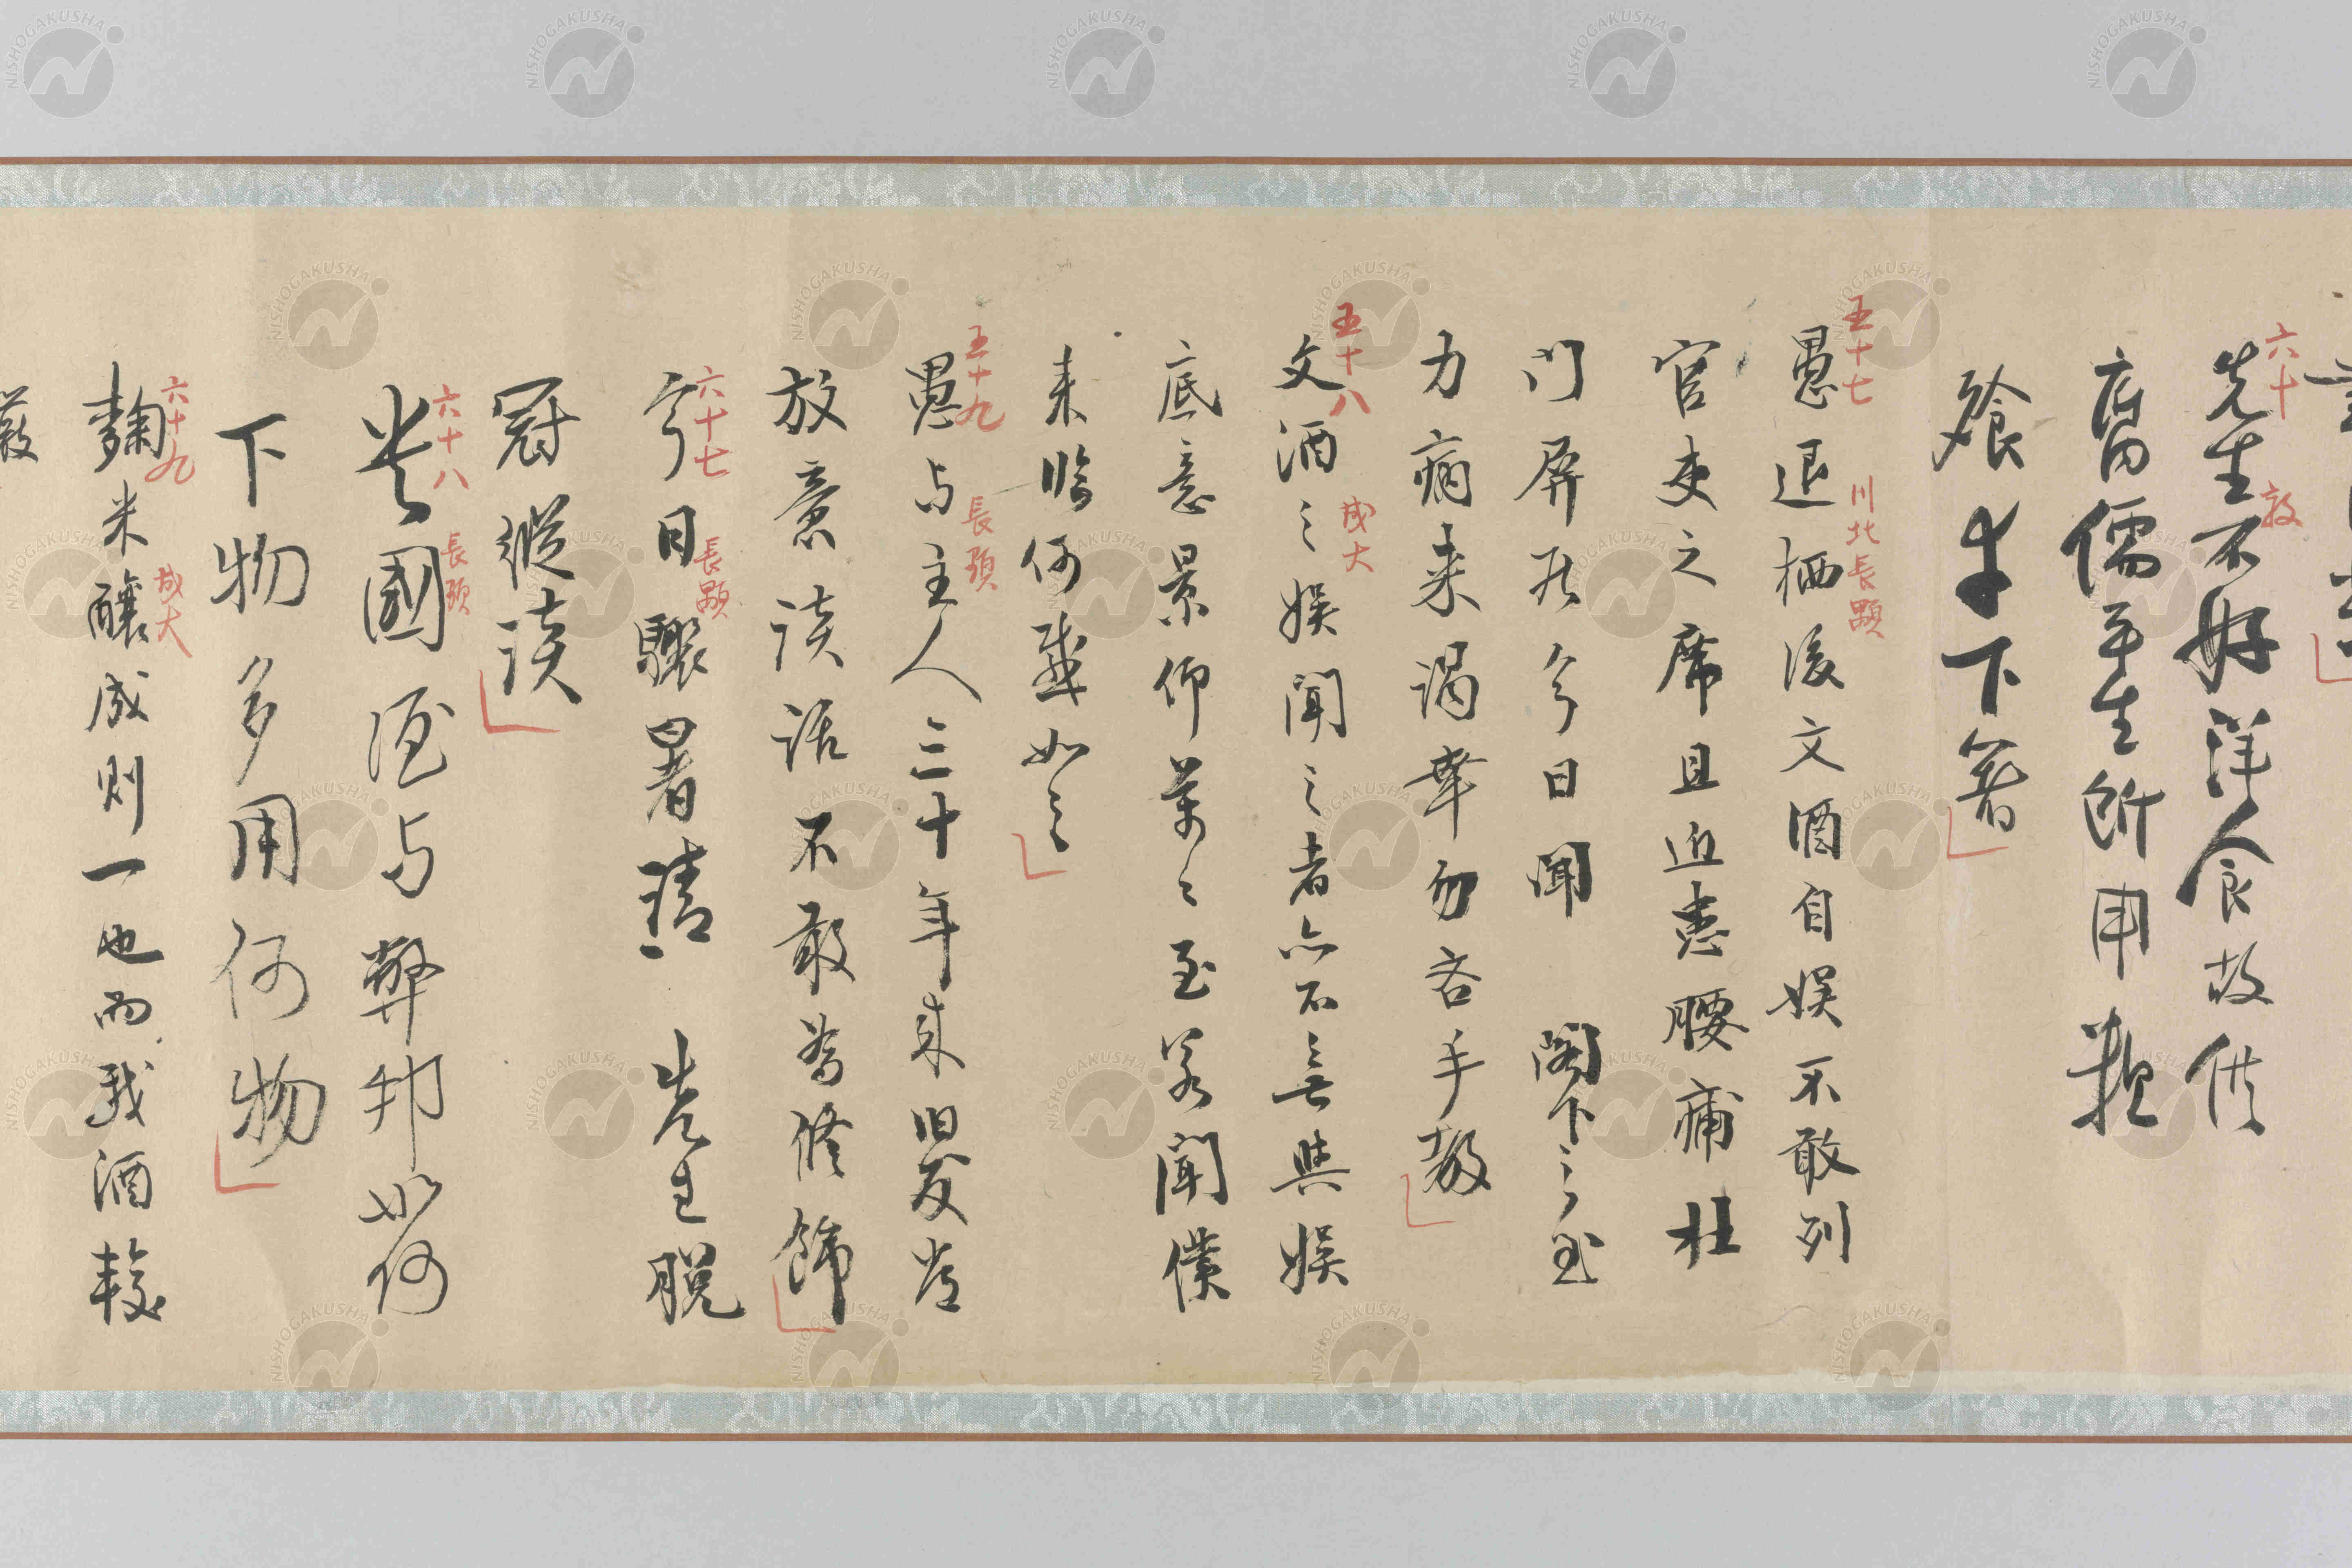 六十 毅
先生不好洋食故供
腐儒平生所用粗
飱幸下箸
五十七 川北長顒
愚退栖後文酒自娯不敢列
官吏之席且近患腰痛杜
门屏居今日聞 閣下之至
力病来謁幸勿吝手教
五十八 成大
文酒之娯聞之者亦不無與娯
底意景仰萬〻至若聞僕
来臨何感如之
五十九 長顒
愚与主人三十年来旧友常
放意談話不敢為修飾
六十七 長顒
今日驟暑請 先生脱
冠縦談
六十八 長顒
貴國酒与弊邦如何
下物多用何物
六十九 成大
麹米釀成則一也而我酒較
嚴